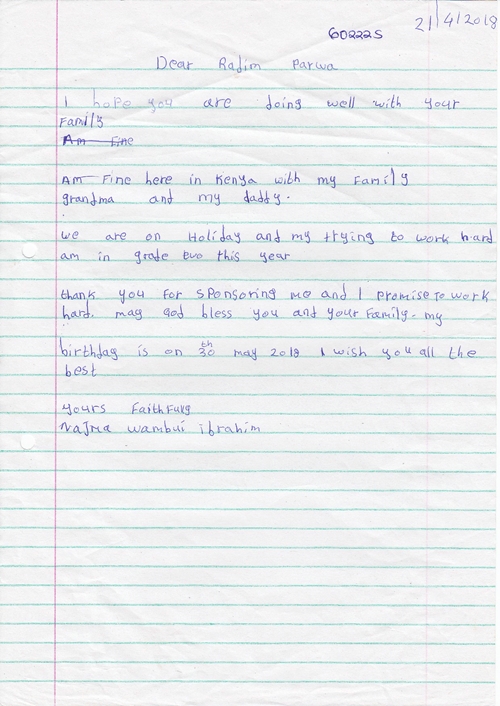 60222S
21/4/2018
Dear Radim Parwa
I hope you are doing well with your
Family
Am Fine
Am Fine here in Kenya with my Family
grandma and my daddy.
we are on Holiday and my trying to work hard
am in grade two this year
thank you for sponsoring me and I promise to work
hard. may God bless you and your Family. my
birthday is on 30th may 2018 I wish you all the
best
yours Faithfully
Najma wambui ibrahim